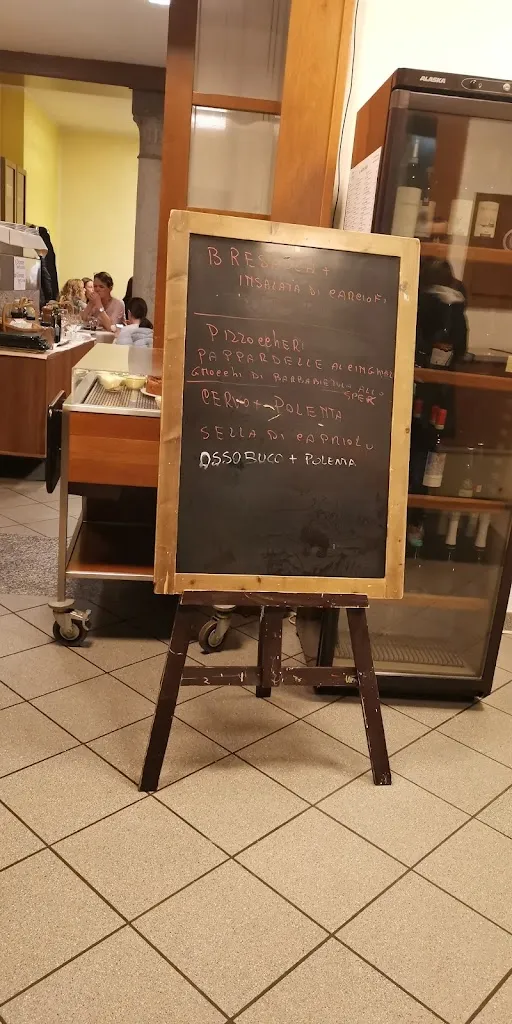 ALASKA
BRESAOLA +
INSALATA DI CARCIOFI
PIZZOCCHERI
PAPPARDELLE AL CINGHIAL
GNOCCHI DI BARBABIETOLA ALLO
SPEK
CERVO + POLENTA
SELLA DI CAPRIOLO
OSSOBUCO + POLENTA